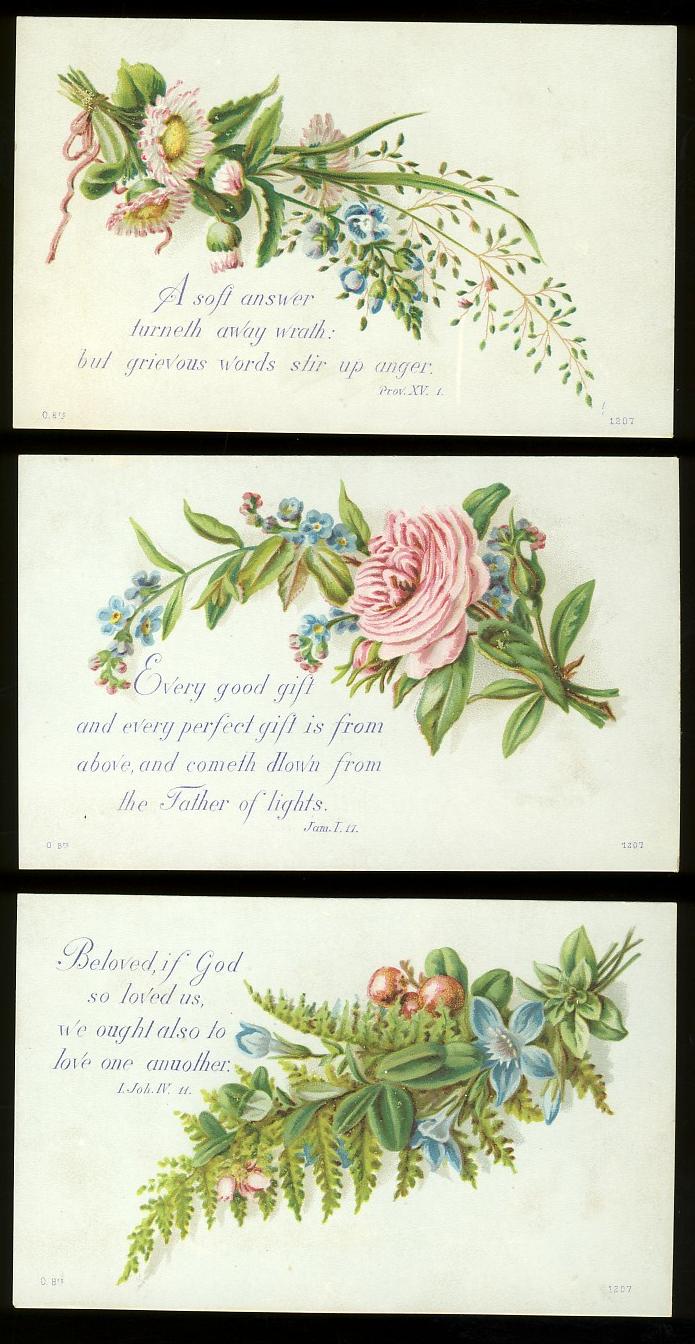 A soft answer
turneth away wrath:
but grievous words stir up anger.
Prov. XV. 1.
1207
Every good gift
and every perfect gift is from
above, and cometh dlown from
the Father of lights.
Jam. I. 17.
1207
Beloved, if God
so loved us,
we ought also to
love one anuother.
I. Joh. IV. 11.
1207